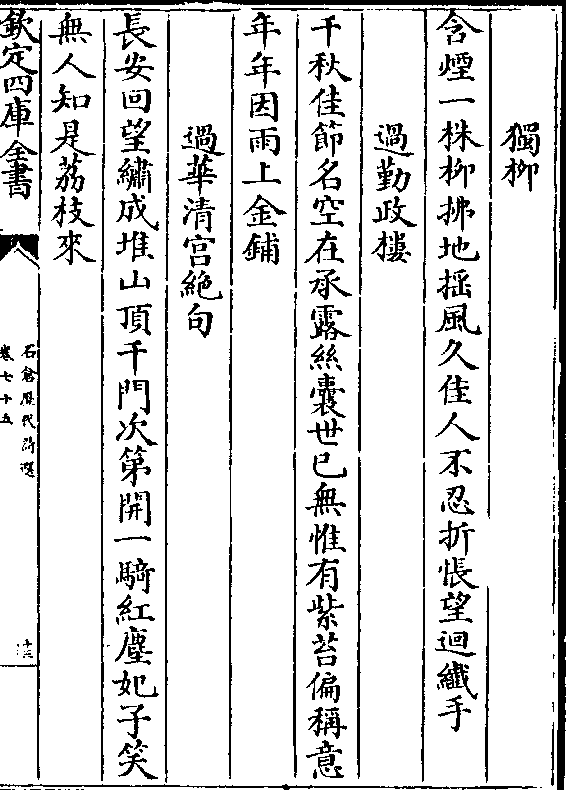 獨柳
含煙一株柳拂地揺風久佳人不忍折悵望迴纎手
過勤政樓
千秋佳節名空在承露絲囊世已無惟有紫苔偏稱意
年年因雨上金鋪
過華清宫絶句
長安回望繡成堆山頂千門次第開一騎紅塵妃子笑
無人知是荔枝來
欽定四庫全書
石倉歴代詩選
卷七十五
十三